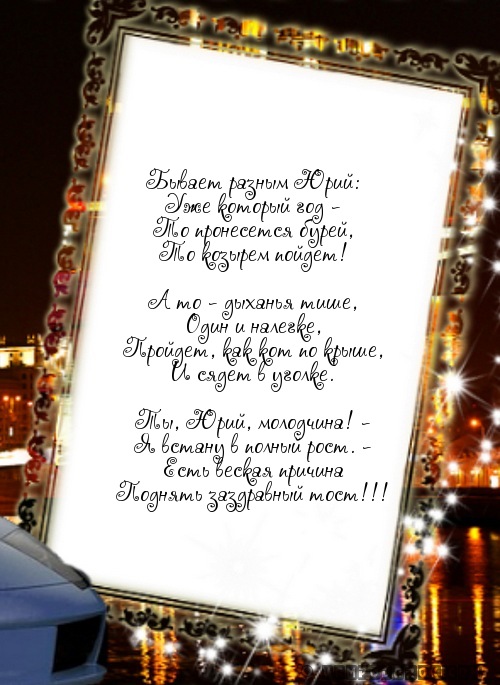 Бывает разным Юрий:
Уже который год -
То пронесется бурей,
То козырем пойдет!
А то - дыханья тише,
Один и налегке,
Пройдет, как кот по крыше,
И сядет в уголке.
Ты, Юрий, молодчина! -
Я встану в полный рост. -
Есть веская причина
Поднять заздравный тост!!!